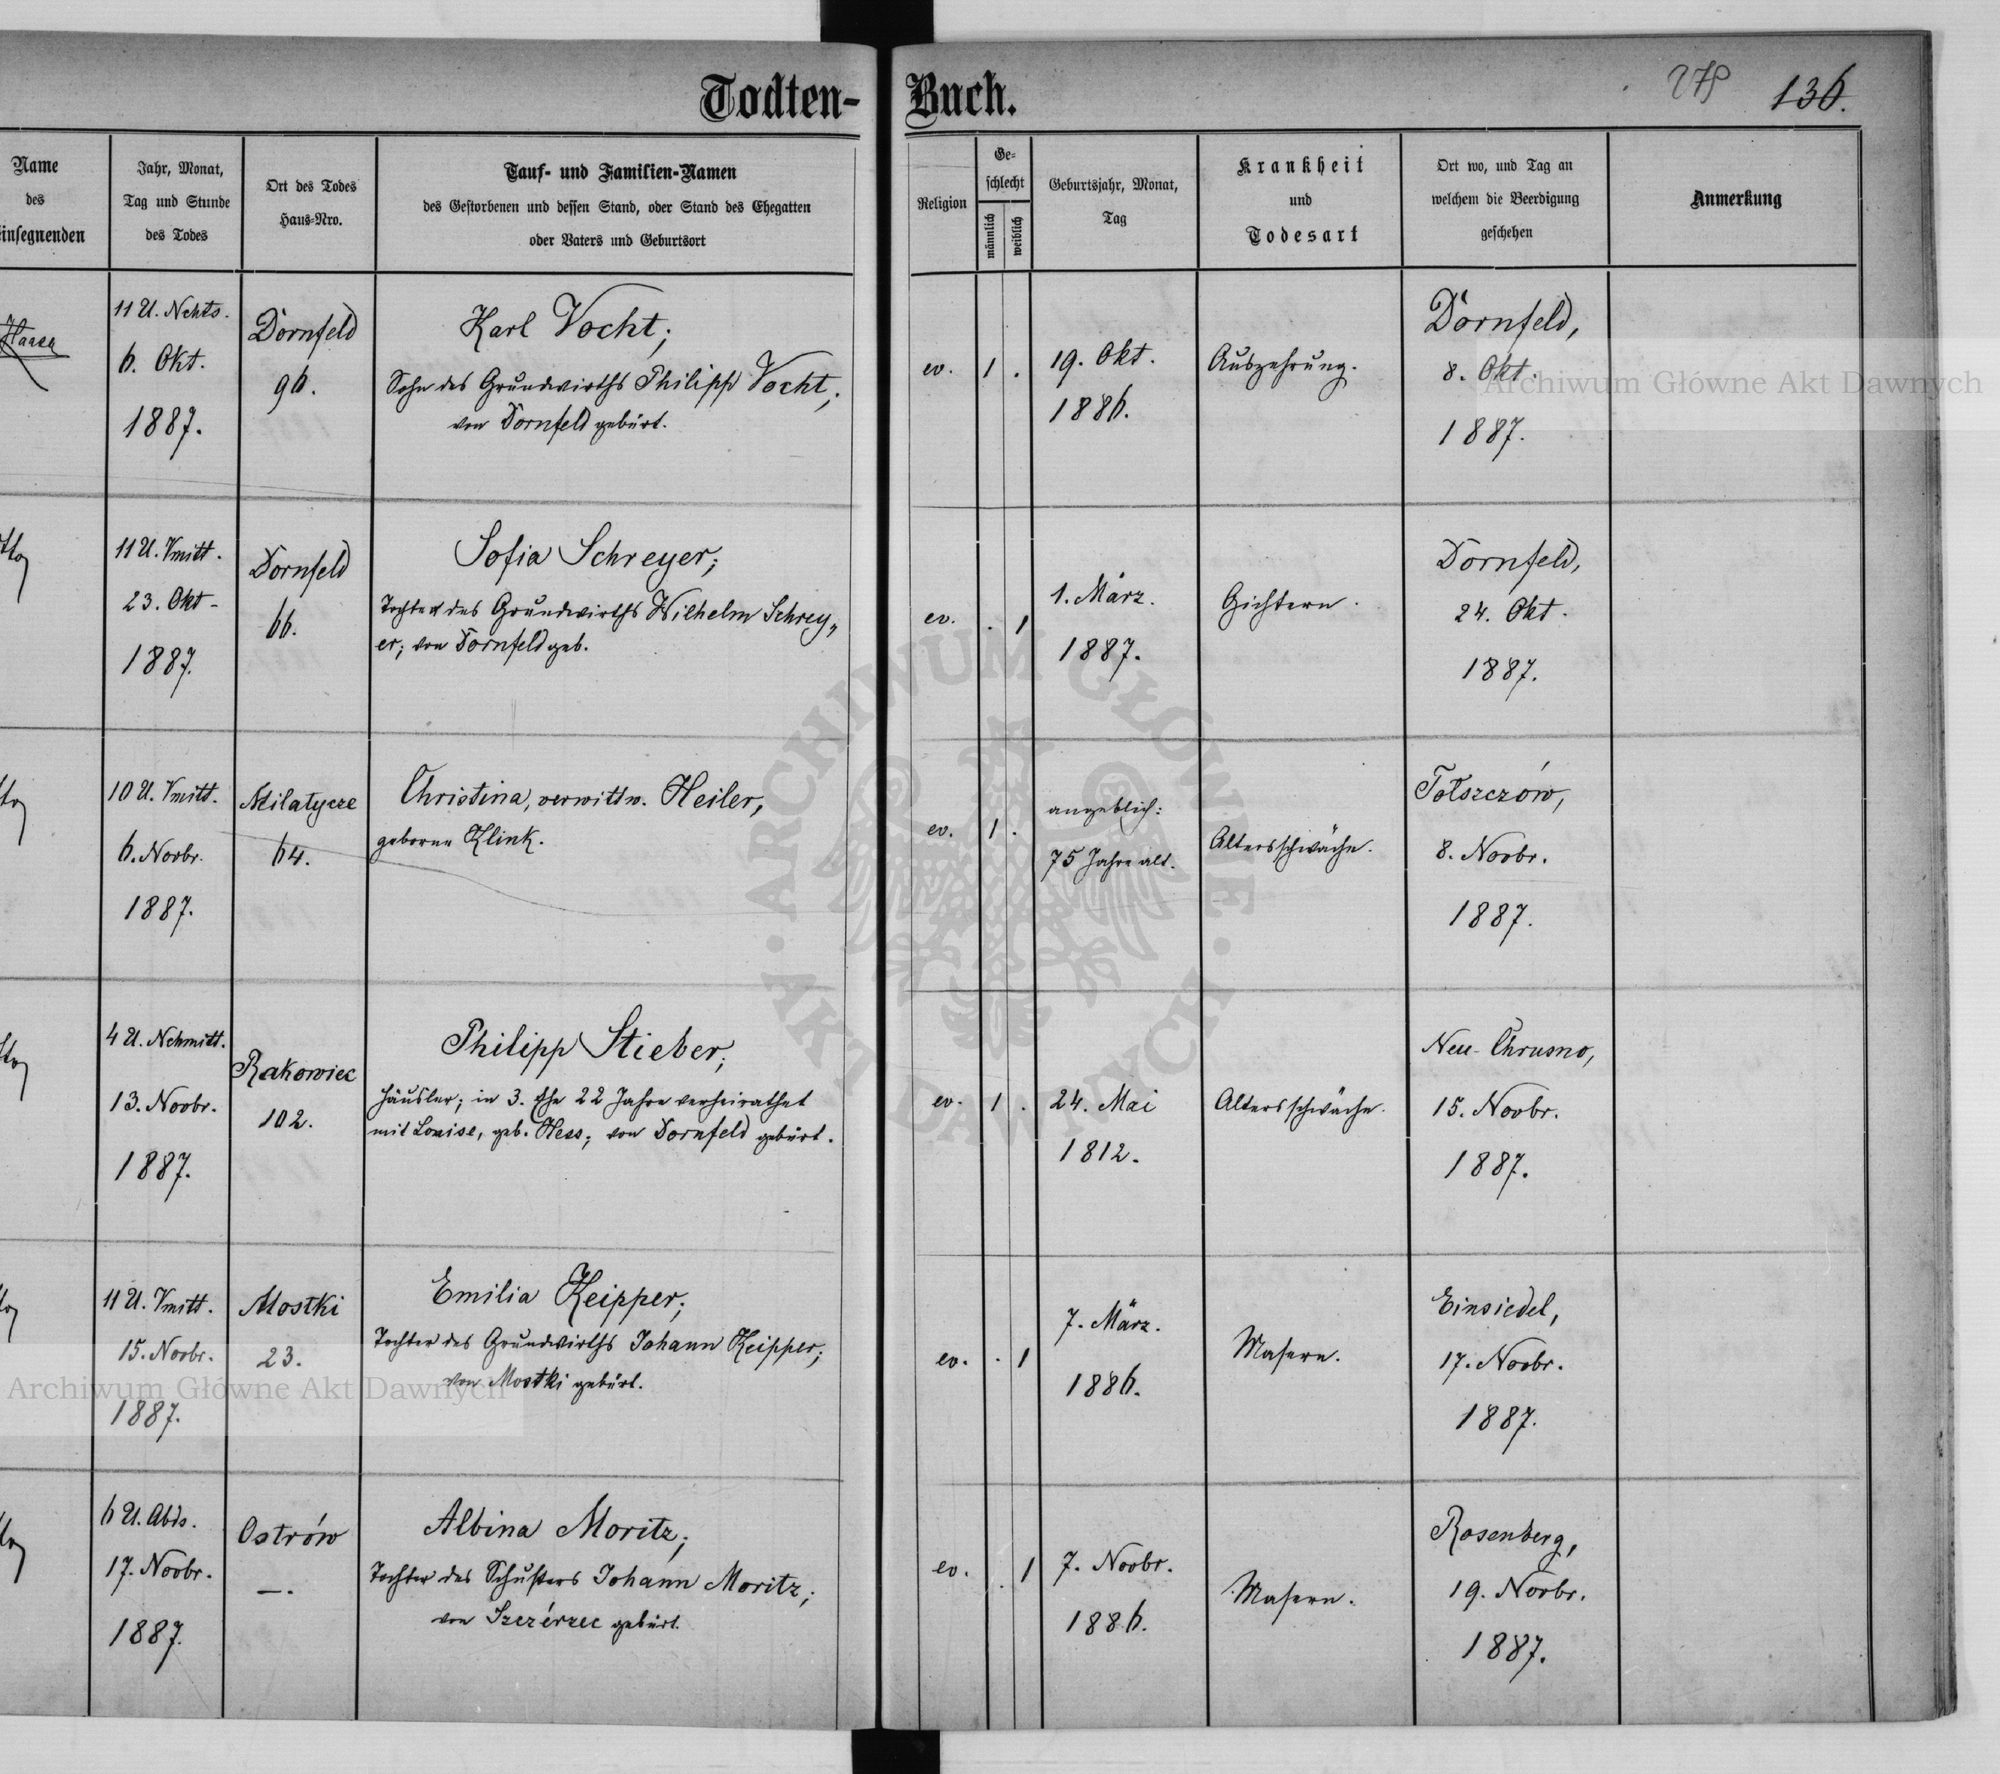 Todten-Buch.
278 136.
Name des Einsegnenden
Jahr, Monat, Tag und Stunde des Todes
Ort des Todes Haus-Nro.
Tauf- und Familien-Namen
des Gestorbenen und dessen Stand, oder Stand des Ehegatten
oder Vaters und Geburtsort
Religion
Geschlecht
männlich
weiblich
Geburtsjahr, Monat, Tag
Krankheit und Todesart
Ort wo, und Tag an welchem die Beerdigung geschehen
Anmerkung
Haase
11 U. Nchts.
6. Okt.
1887.
Dornfeld
96.
Karl Vocht;
Sohn des Grundwirths Philipp Vocht;
von Dornfeld gebürt.
ev.
1 .
19. Okt.
1886.
Auszehrung.
Dornfeld,
8. Okt.
1887.
11 U. Vmitt.
23. Okt.
1887.
Dornfeld
66.
Sofia Schreyer;
Tochter des Grundwirths Wilhelm Schrey„
er; von Dornfeld geb.
ev.
. 1
1. März.
1887.
Gichtern.
Dornfeld,
24. Okt.
1887.
10 U. Vmitt.
6. Novbr.
1887.
Milatycze
64.
Christina, verwittw. Heiler,
geborne Klink.
ev.
1 .
angeblich:
75 Jahre alt.
Altersschwäche.
Tołszczów,
8. Novbr.
1887.
4 U. Nchmitt.
13. Novbr.
1887.
Rakowiec
102.
Philipp Stieber;
Häusler; in 3. Ehe 22 Jahre verheirathet
mit Louise, geb. Hess; von Dornfeld gebürt.
ev.
1 .
24. Mai
1812.
Altersschwäche.
Neu-Chrusno,
15. Novbr.
1887.
11 U. Vmitt.
15. Novbr.
1887.
Mostki
23.
Emilia Keipper;
Tochter des Grundwirths Johann Keipper;
von Mostki gebürt.
ev.
. 1
7. März.
1886.
Masern.
Einsiedel,
17. Novbr.
1887.
6 U. Abds.
17. Novbr.
1887.
Ostrów
—.
Albina Moritz;
Tochter des Schusters Johann Moritz;
von Szczérzec gebürt.
ev.
. 1
7. Novbr.
1886.
Masern.
Rosenberg,
19. Novbr.
1887.
Archiwum Główne Akt Dawnych
ARCHIWUM GŁÓWNE · AKT DAWNYCH ·
Archiwum Główne Akt Dawnych